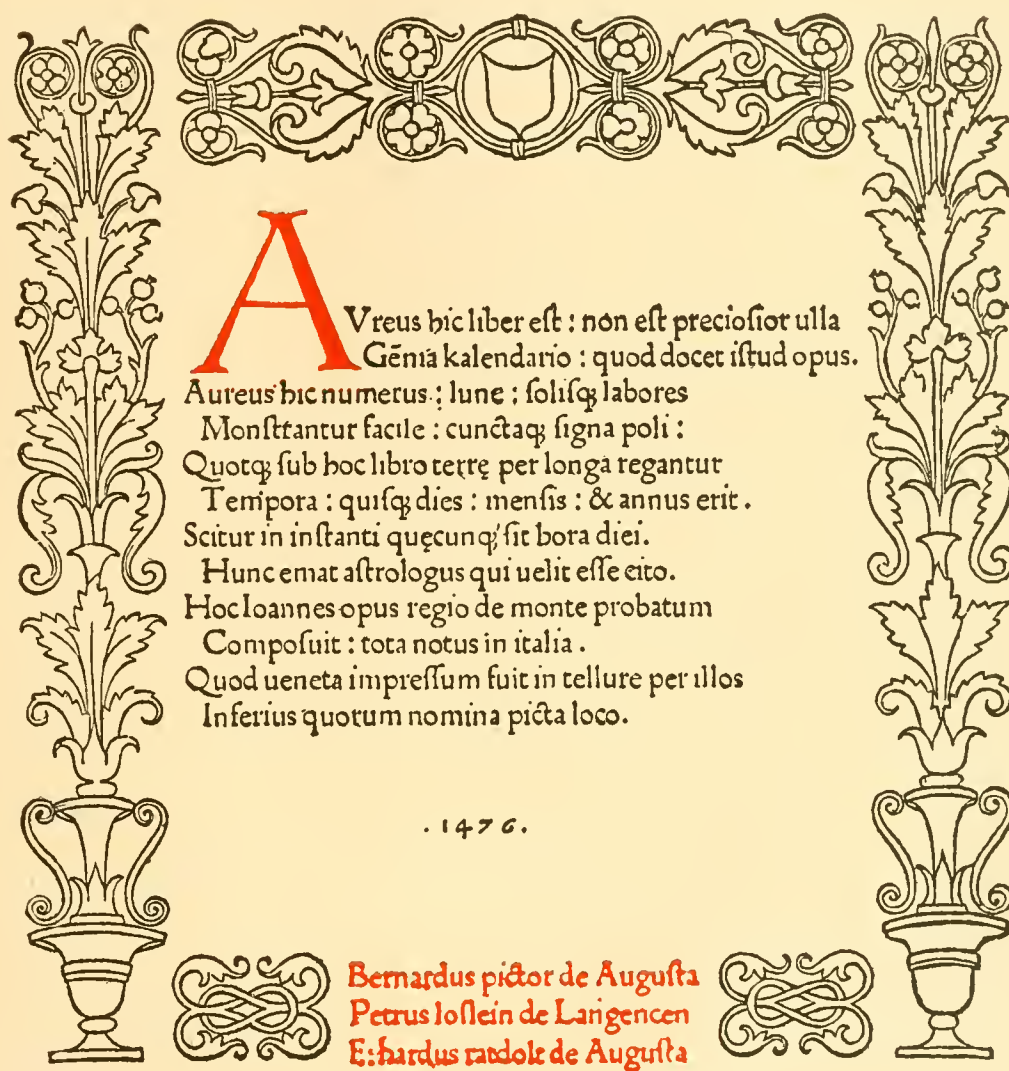 AVreus hic liber eſt : non eſt precioſior ulla
Gēma kalendario : quod docet iſtud opus.
Aureus hic numerus : lune : ſoliſqꝫ labores
Monſtrantur facile : cunctaqꝫ ſigna poli :
Quotqꝫ ſub hoc libro terrę per longa regantur
Tempora : quiſqꝫ dies : menſis : & annus erit .
Scitur in inſtanti quęcunqꝫ ſit hora diei.
Hunc emat aſtrologus qui uelit eſſe cito.
Hoc Ioannes opus regio de monte probatum
Compoſuit : tota notus in italia .
Quod ueneta impreſſum fuit in tellure per illos
Inferius quorum nomina picta loco.
. 1476.
Bernardus pictor de Auguſta
Petrus loſlein de Langencen
Erhardus ratdolt de Auguſta